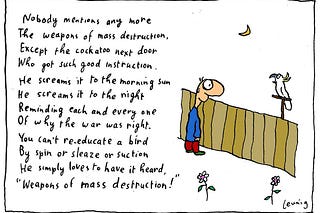 Nobody mentions any more
The weapons of mass destruction,
Except the cockatoo next door
Who got such good instruction.
He screams it to the morning sun
He screams it to the right
Reminding each and every one
Of why the war was right.
You can't re-educate a bird
By spin or sleaze or suction
He simply loves to have it heard,
"Weapons of mass destruction!"
Leunig